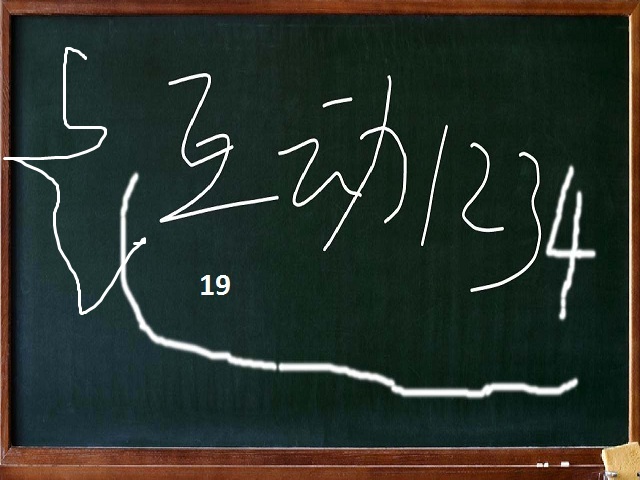 互动1234
19